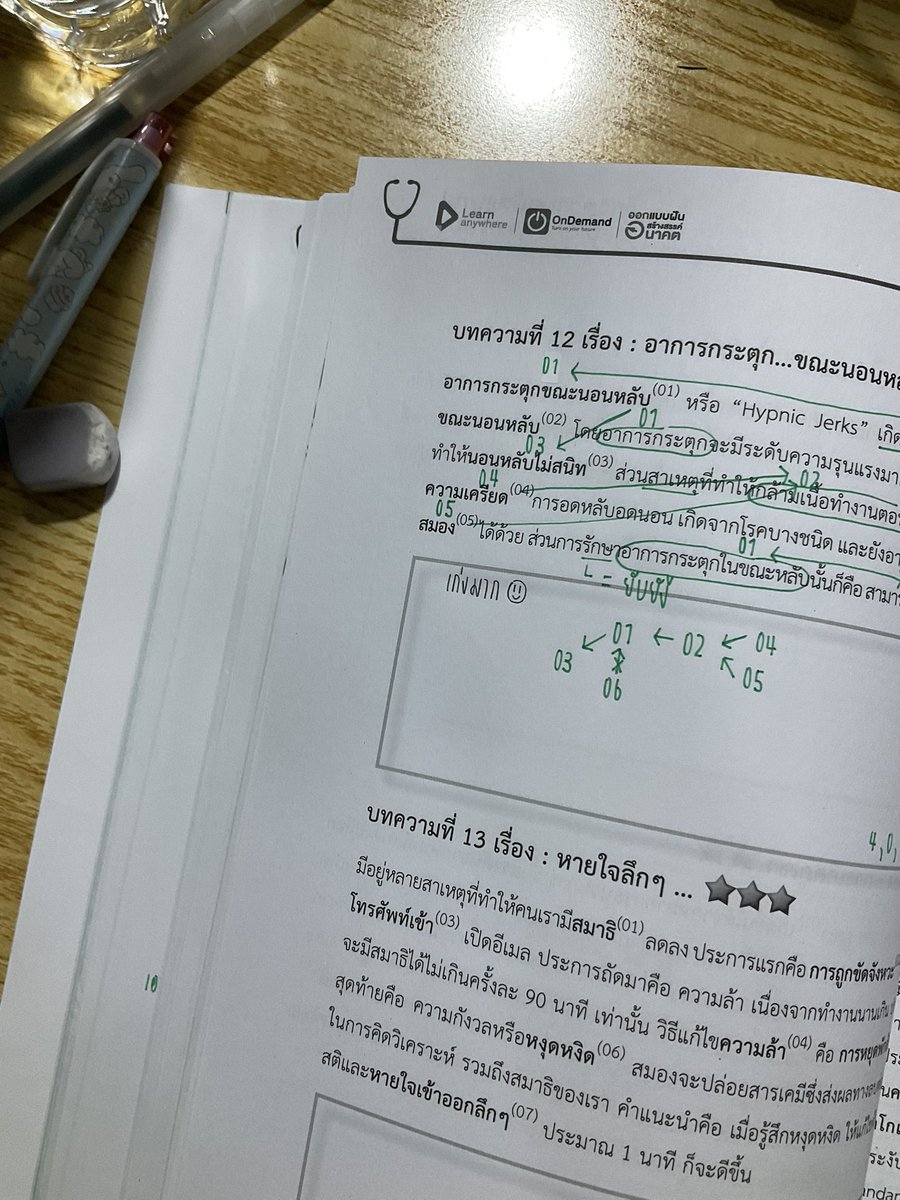 Learn anywhere
OnDemand
Turn on your future
ออกแบบฝัน
สร้างสรรค์
อนาคต
บทความที่ 12 เรื่อง : อาการกระตุก...ขณะนอนหลั
01
อาการกระตุกขณะนอนหลับ(01) หรือ “Hypnic Jerks” เกิด
01
ขณะนอนหลับ(02) โดยอาการกระตุกจะมีระดับความรุนแรงมา
03 02
ทำให้นอนหลับไม่สนิท(03) ส่วนสาเหตุที่ทำให้กล้ามเนื้อทำงานตอ
04
ความเครียด(04) การอดหลับอดนอน เกิดจากโรคบางชนิด และยังอา
05 01
สมอง(05) ได้ด้วย ส่วนการรักษาอาการกระตุกในขณะหลับนั้นก็คือ สามา
เก่งมาก = ยับยั้ง
01 ← 02 ← 04
03 05
06
4, 0,
บทความที่ 13 เรื่อง : หายใจลึกๆ ...
มีอยู่หลายสาเหตุที่ทำให้คนเรามีสมาธิ(01) ลดลง ประการแรกคือ การถูกขัดจังหวะ
โทรศัพท์เข้า(03) เปิดอีเมล ประการถัดมาคือ ความล้า เนื่องจากทำงานนานเกิน
จะมีสมาธิได้ไม่เกินครั้งละ 90 นาที เท่านั้น วิธีแก้ไขความล้า(04) คือ การหยุดพัก
สุดท้ายคือ ความกังวลหรือหงุดหงิด(06) สมองจะปล่อยสารเคมีซึ่งส่งผลทาง
ในการคิดวิเคราะห์ รวมถึงสมาธิของเรา คำแนะนำคือ เมื่อรู้สึกหงุดหงิด ให้แก้ไข
สติและหายใจเข้าออกลึกๆ(07) ประมาณ 1 นาที ก็จะดีขึ้น
10